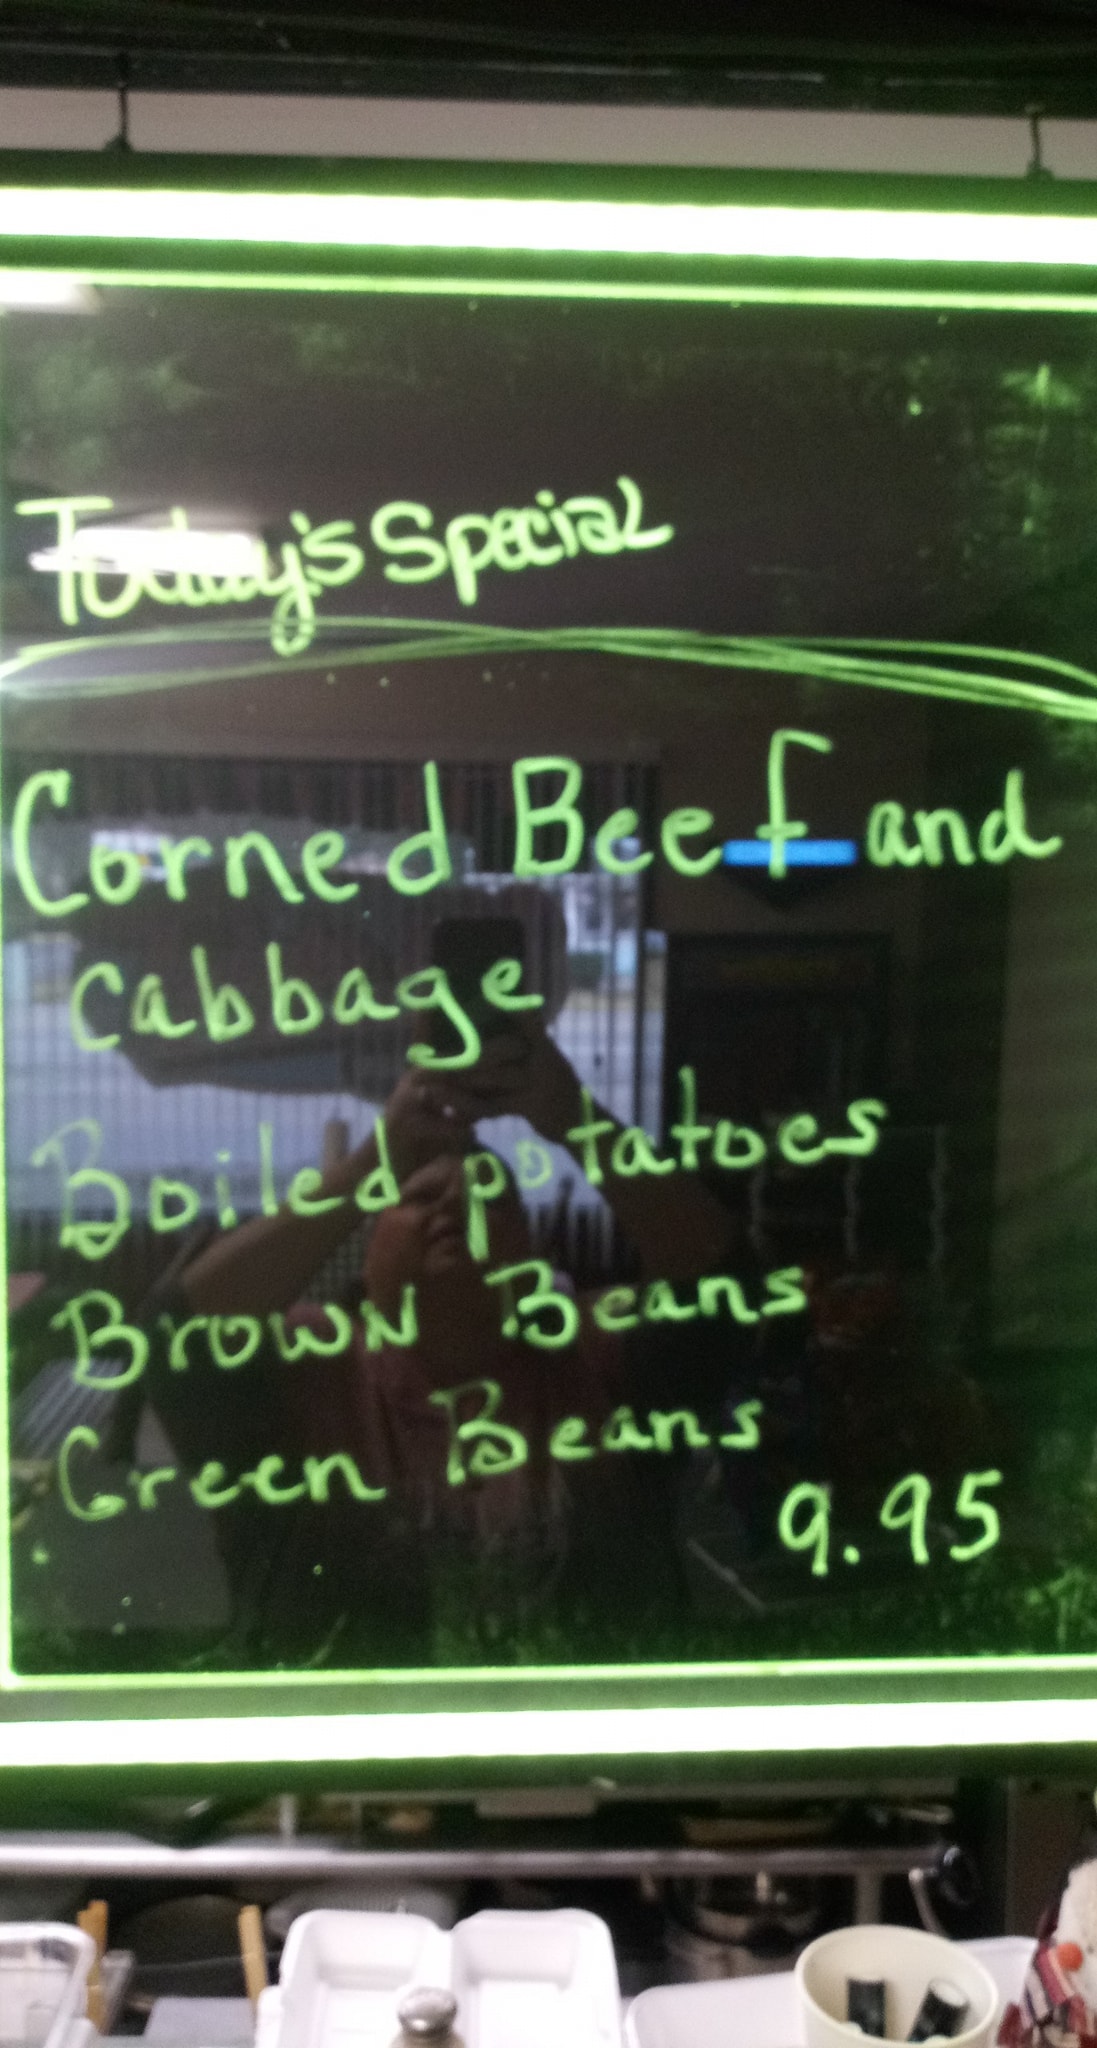 Today's Special
Corned Beef and
cabbage
Boiled potatoes
Brown Beans
Green Beans
9.95